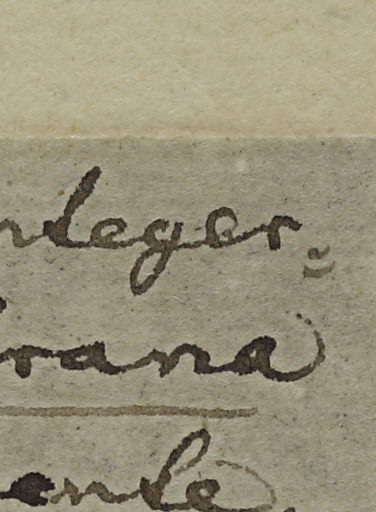 nleger=
rana
ente